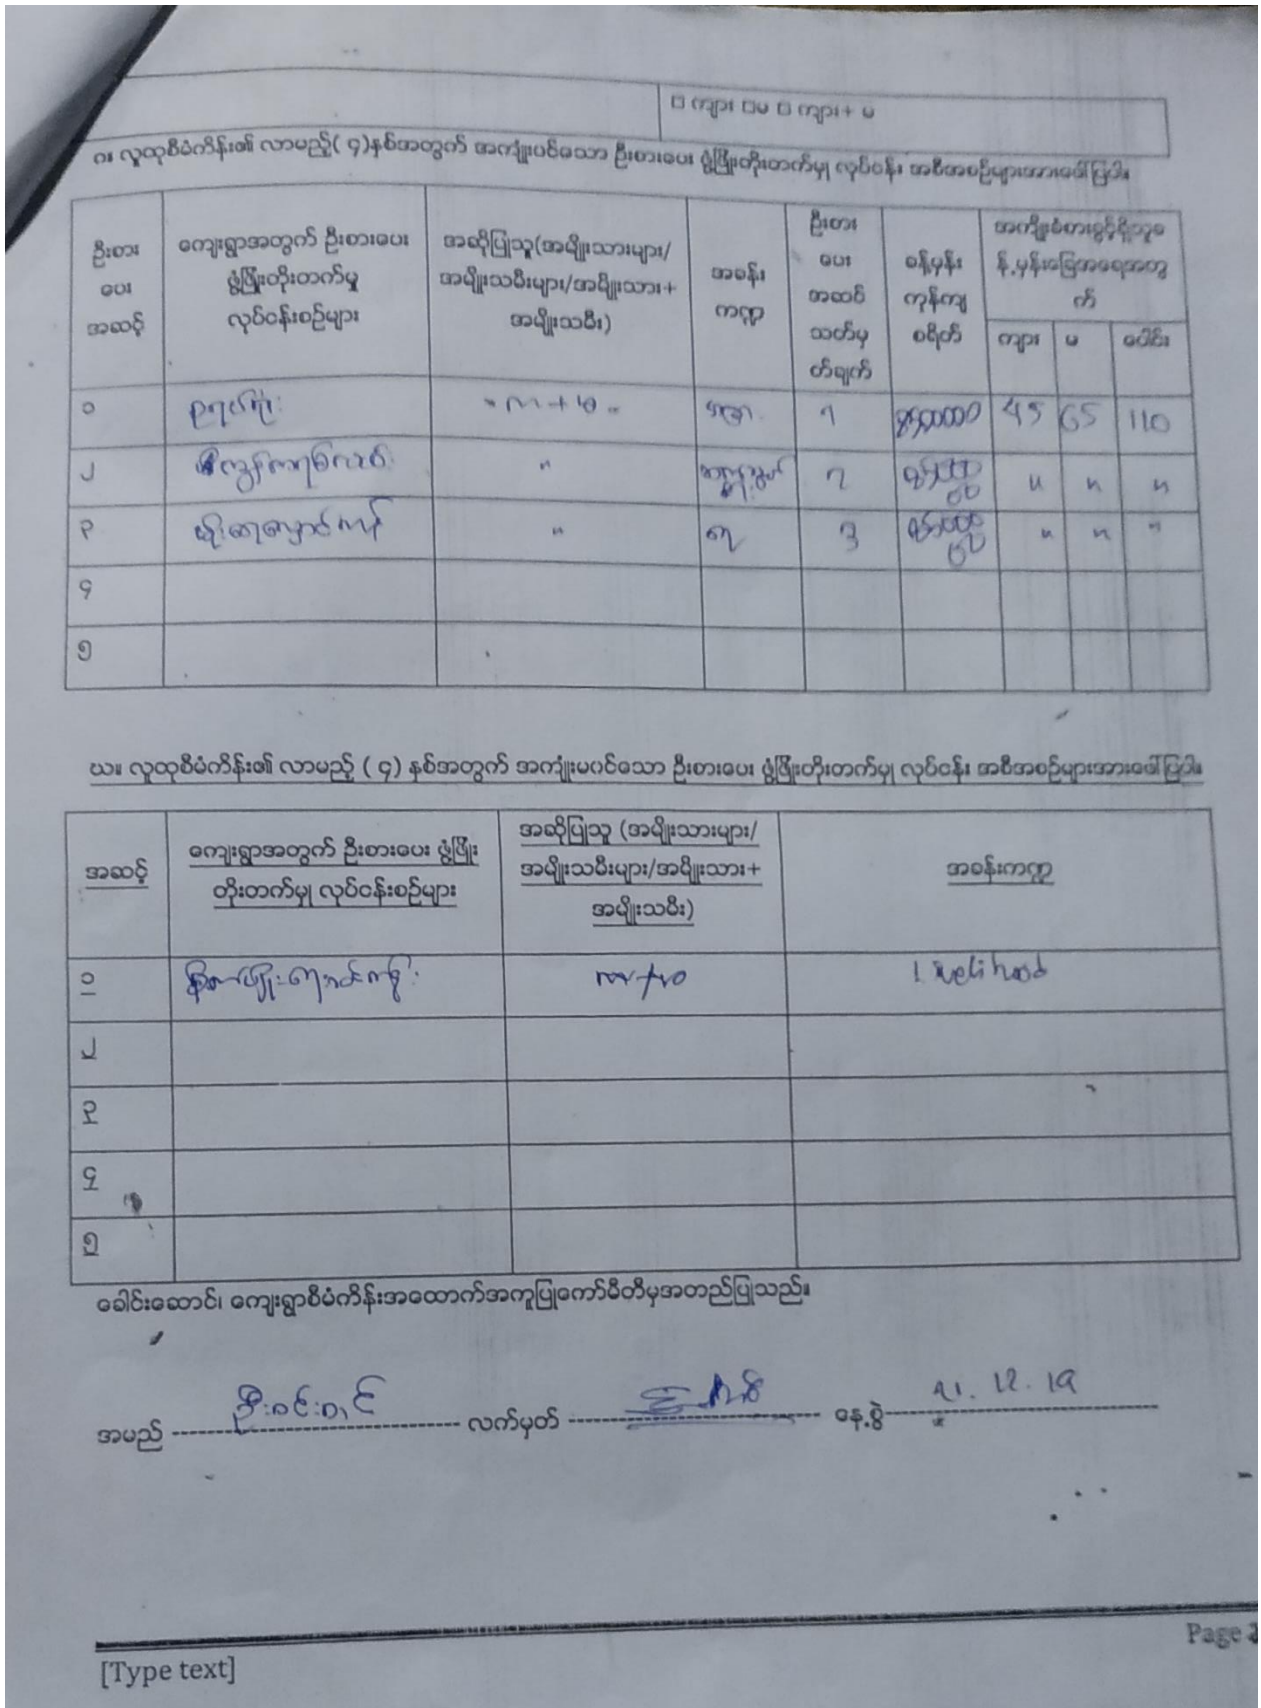 □ ကျား □မ □ ကျား+ မ
ဂ။ လူထုစီမံကိန်း၏ လာမည့်( ၄)နှစ်အတွက် အကျုံးဝင်သော ဦးစားပေး ဖွံ့ဖြိုးတိုးတက်မှု လုပ်ငန်း အစီအစဉ်များအားဖေါ်ပြပါ။
ဦးစား
ပေး
အဆင့်
ကျေးရွာအတွက် ဦးစားပေး
ဖွံ့ဖြိုးတိုးတက်မှု
လုပ်ငန်းစဉ်များ
အဆိုပြုသူ(အမျိုးသားများ/
အမျိုးသမီးများ/အမျိုးသား+
အမျိုးသမီး)
အခန်း
ကဏ္ဍ
ဦးစား
ပေး
အဆင်
သတ်မှ
တ်ချက်
ခန့်မှန်း
ကုန်ကျ
စရိတ်
အကျိုးခံစားခွင့်ရှိသူခ
န့်မှန်းခြေအရေအတွ
က်
ကျား
မ
ပေါင်း
၁ 45 65 110
၂ " " " "
၃ " 3 " " "
၄
၅
ဃ။ လူထုစီမံကိန်း၏ လာမည့် ( ၄) နှစ်အတွက် အကျုံးမဝင်သော ဦးစားပေး ဖွံ့ဖြိုးတိုးတက်မှု လုပ်ငန်း အစီအစဉ်များအားဖေါ်ပြပါ။
အဆင့်
ကျေးရွာအတွက် ဦးစားပေး ဖွံ့ဖြိုး
တိုးတက်မှု လုပ်ငန်းစဉ်များ
အဆိုပြုသူ (အမျိုးသားများ/
အမျိုးသမီးများ/အမျိုးသား+
အမျိုးသမီး)
အခန်းကဏ္ဍ
၁ Livelihood
၂
၃
၄
၅
ခေါင်းဆောင်၊ ကျေးရွာစီမံကိန်းအထောက်အကူပြုကော်မီတီမှအတည်ပြုသည်။
အမည် ဦးဝင်းတင် လက်မှတ် နေ့စွဲ 21.12.19
[Type text]
Page